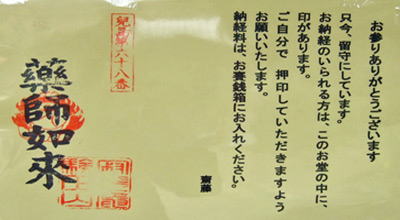 お参りありがとうございます
只今、留守にしています。
お納経のいられる方は、このお堂の中に、
印があります。
ご自分で 押印していただきますよう
お願いいたします。
納経料は、お賽銭箱にお入れください。
齋藤
薬師如來